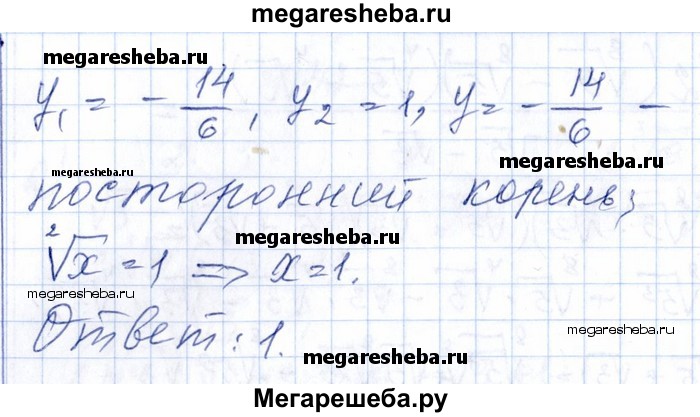 megaresheba.ru
megaresheba.ru
y₁ = -14/6, y₂ = 1, y = -14/6 -
megaresheba.ru
megaresheba.ru
посторонний корень;
megaresheba.ru
²√x = 1 => x = 1.
megaresheba.ru
megaresheba.ru
Ответ: 1.
megaresheba.ru
Мегарешеба.ру